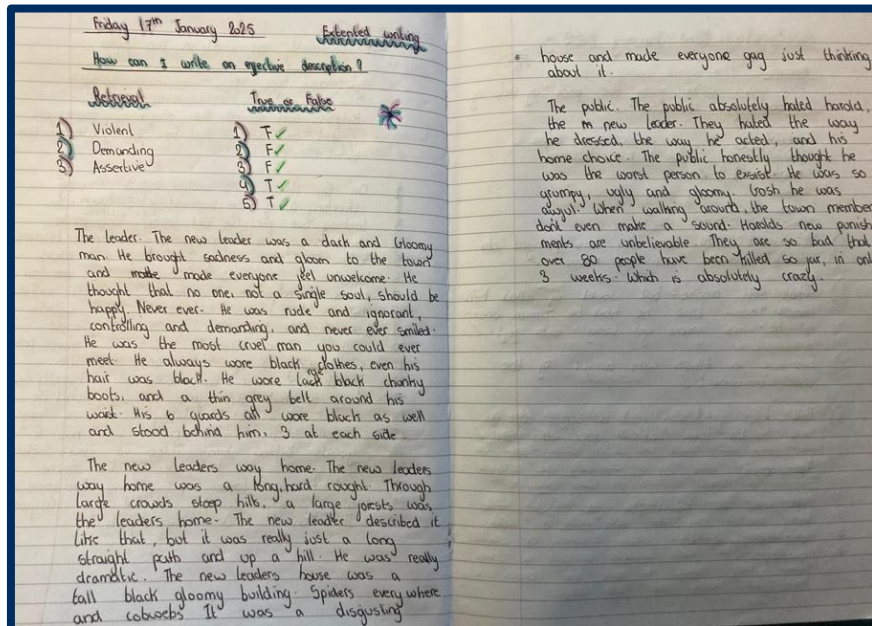 Friday 17th January 2025
Extented writing
How can I write an effective description?
Retrieval
1) Violent
2) Demanding
3) Assertive
True or False
1) F✓
2) F✓
3) F✓
4) T✓
5) T✓
The leader. The new leader was a dark and Gloomy
man. He brought sadness and gloom to the town
and made everyone feel unwelcome. He
thought that no one, not a single soul, should be
happy. Never ever. He was rude and ignorant,
controlling and demanding, and never ever smiled.
He was the most cruel man you could ever
meet. He always wore black clothes, even his
hair was black. He wore black chunky
boots, and a thin grey belt around his
waist. His 6 guards all wore black as well
and stood behind him, 3 at each side
The new leaders way home. The new leaders
way home was a long, hard rought. Through
large crowds steep hills, a large forests was
the leaders home. The new leader described it
like that, but it was really just a long
straight path and up a hill. He was really
dramatic. The new leaders house was a
tall black gloomy building. Spiders every where
and cobwebs It was a disgusting
house and made everyone gag just thinking
about it.
The public. The public absolutely hated harold,
the new leader. They hated the way
he dressed, the way he acted, and his
home choice. The public honestly thought he
was the worst person to exsist. He was so
grumpy, ugly and gloomy. Gosh he was
awful. When walking around, the town member
don't even make a sound. Harolds new punish
ments are unbelievable. They are so bad that
over 80 people have been killed so far, in onl
3 weeks. Which is absolutely crazy.